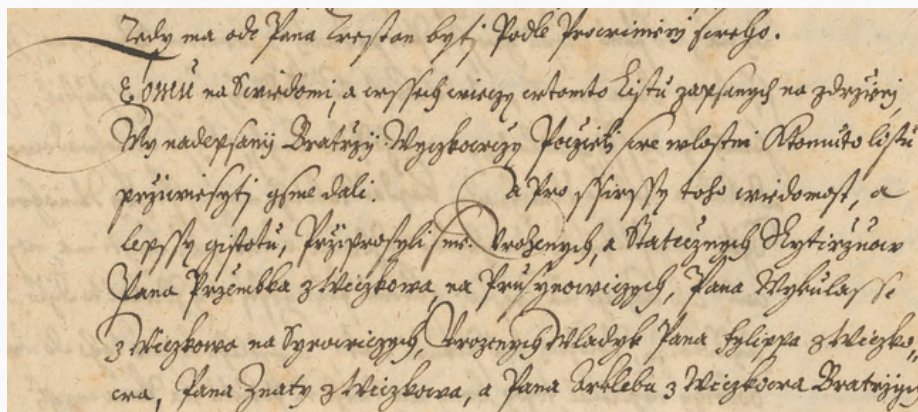 Tedy ma od Pana Trestan byti Podle Prowinieni sweho.
Tomu na Swiedomi, a wssech wieczy wtomto Listu zapsanych na zdrzieni,
My nadepsanij Bratrzy Wyczkowczy Peczieti swe wlastni Ktomuto listu
przywiesyti gsme dali. A Pro ssirssy toho wiedomost, a
lepssy gistotu, Przyprosyli sme Vrozenych, a Statecznych Rytirzuow
Pana Przembka z Wiczkowa, na Prusynowiczych, Pana Mykulasse
z Wiczkowa na Syrowiczych, Vrozenych Wladyk Pana Fylippa z Wiczko,,
wa, Pana Znaty z Wiczkowa, a Pana Arkleba z Wiczkowa Bratrzy